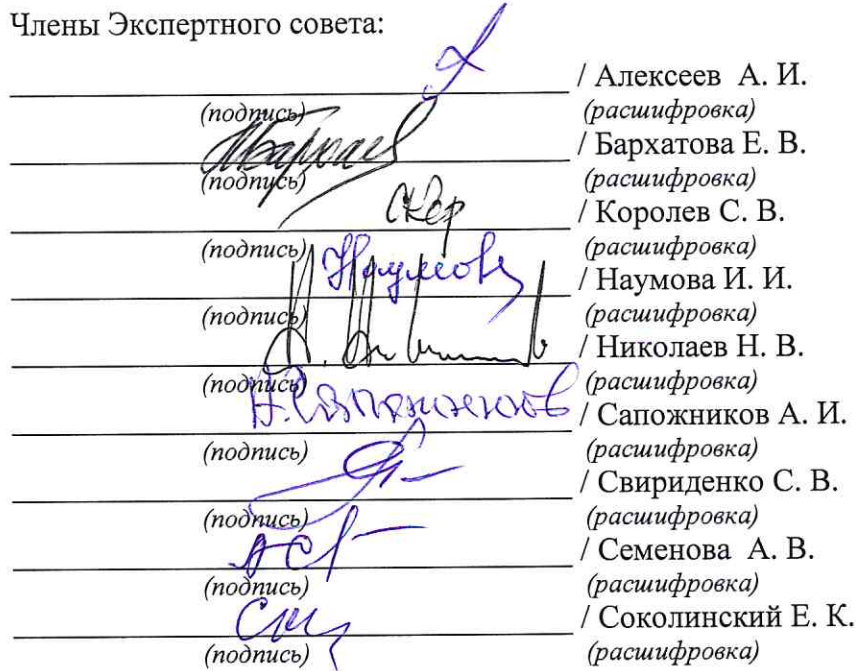 Члены Экспертного совета:
/ Алексеев А. И.
(подпись) (расшифровка)
/ Бархатова Е. В.
(подпись) (расшифровка)
/ Королев С. В.
(подпись) (расшифровка)
Наумова / Наумова И. И.
(подпись) (расшифровка)
/ Николаев Н. В.
(подпись) (расшифровка)
/ Сапожников А. И.
(подпись) (расшифровка)
/ Свириденко С. В.
(подпись) (расшифровка)
/ Семенова А. В.
(подпись) (расшифровка)
/ Соколинский Е. К.
(подпись) (расшифровка)